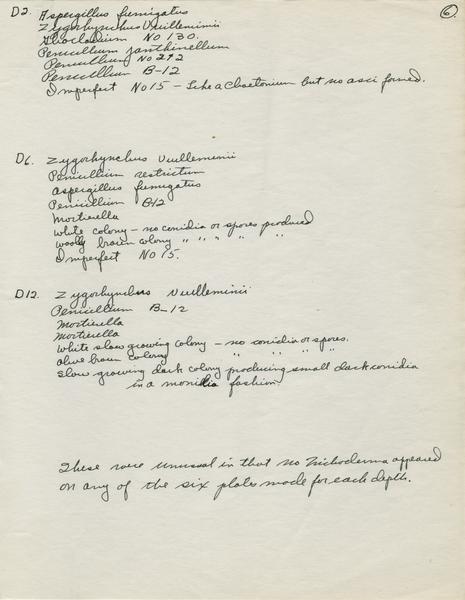 6
D2. Aspergillus fumigatus
Zygorhynchus Vuilleminii
Gliocladium No 130.
Penicillium janthinellum
Penicillium No 292
Penicillium B-12
Imperfect No 15 - Like a Chaetomium but no asci formed.
D6. Zygorhynchus Vuilleminii
Penicillium restrictum
Aspergillus fumigatus
Penicillium B12
Mortierella
White colony - no conidia or spores produced
woolly brown colony " " " " " "
Imperfect No 15.
D12. Zygorhynchus Vuilleminii
Penicillium B-12
Mortierella
Mortierella
White slow growing colony - no conidia or spores.
olive brown colony " " " "
Slow growing dark colony producing small dark conidia
in a monilia fashion
These were unusual in that no Trichoderma appeared
on any of the six plates made for each depth.